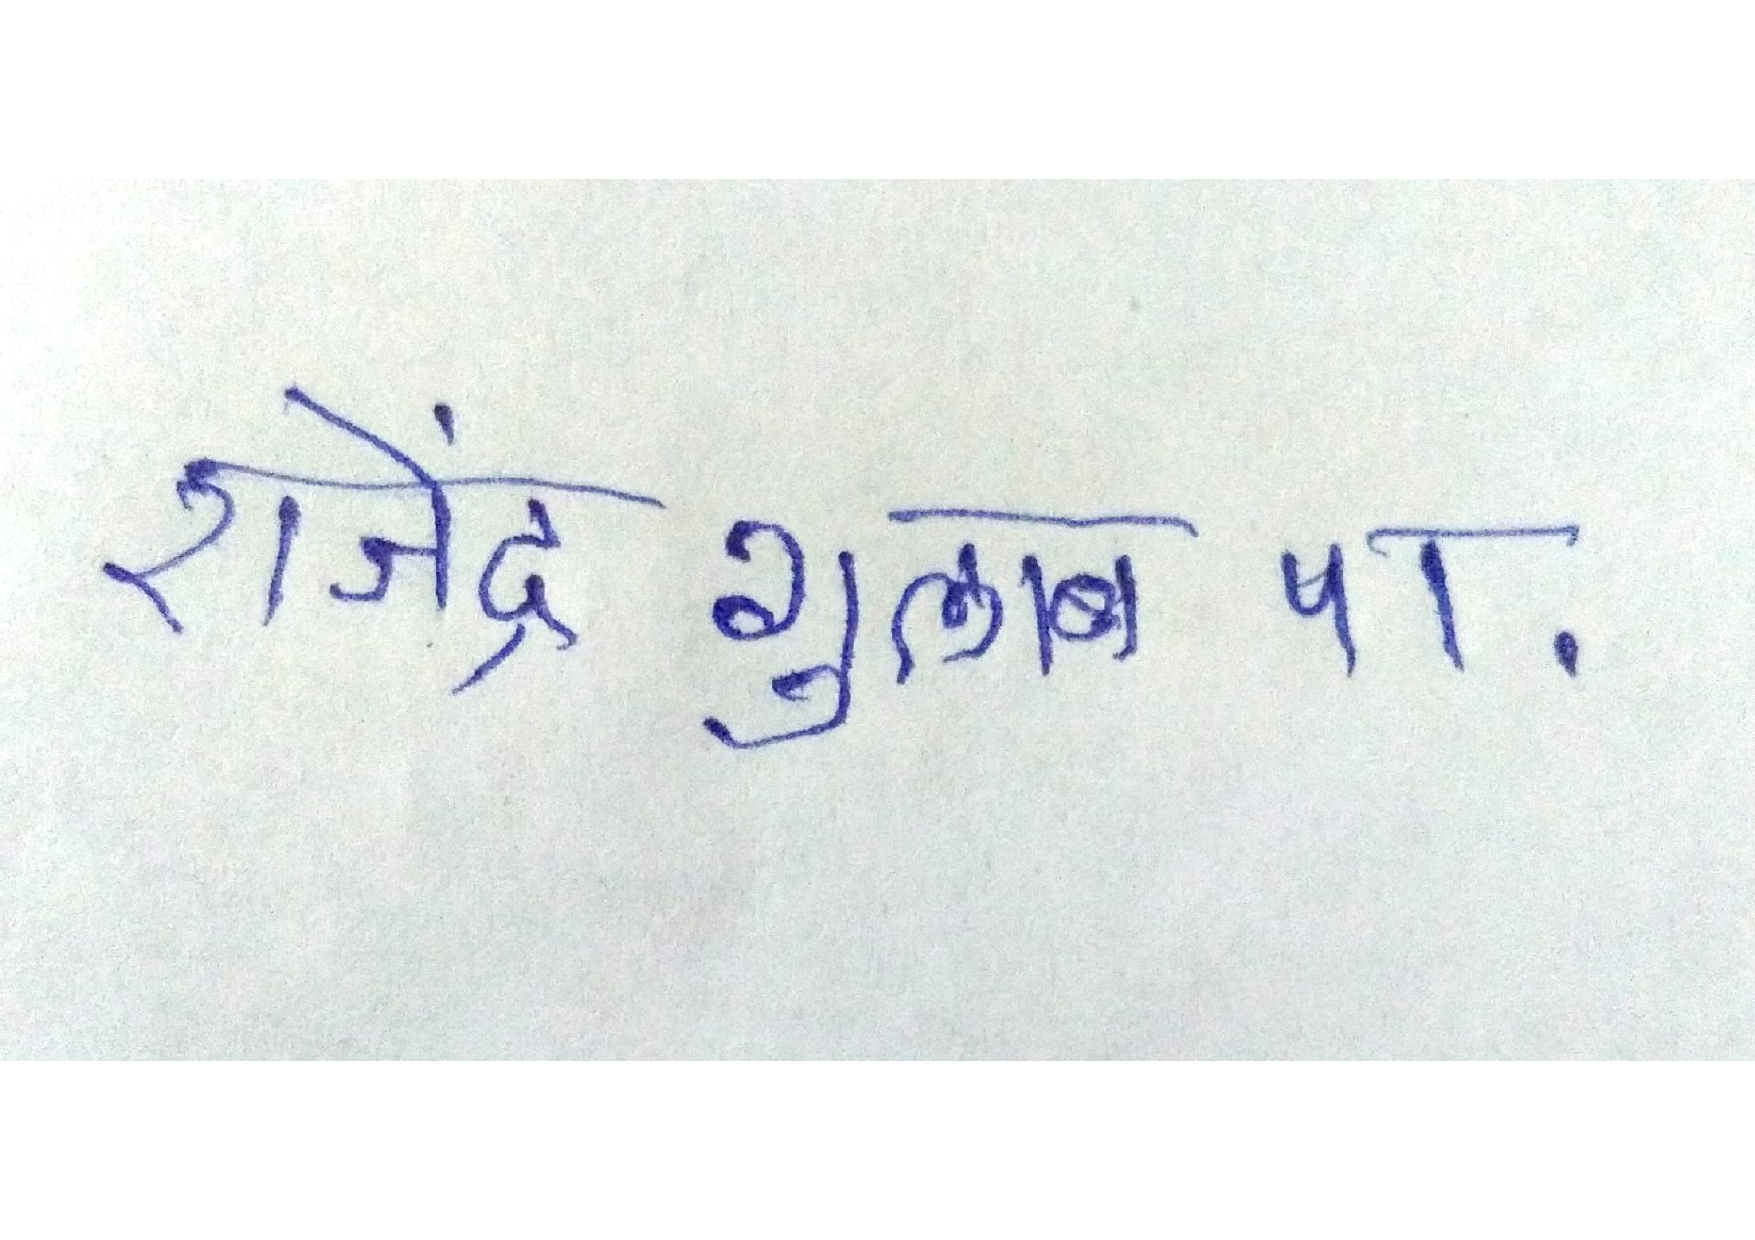 राजेंद्र गुलाब पा.